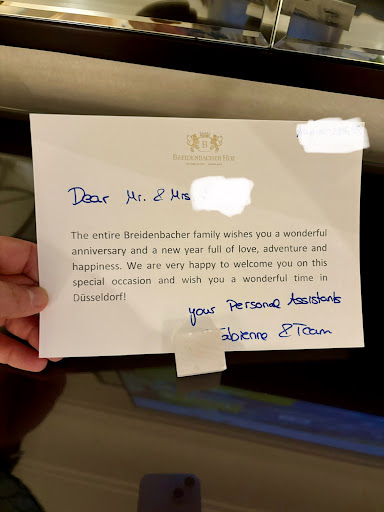 B
BREIDENBACHER HOF
Dear Mr. & Mrs
The entire Breidenbacher family wishes you a wonderful
anniversary and a new year full of love, adventure and
happiness. We are very happy to welcome you on this
special occasion and wish you a wonderful time in
Düsseldorf!
your Personal Assistants
Fabienne & Team